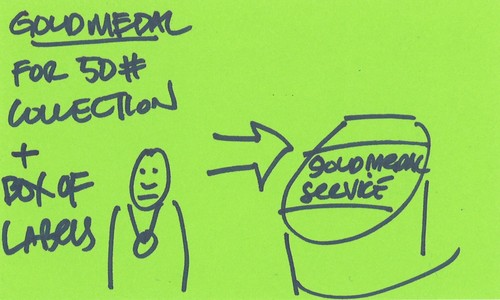 GOLD MEDAL
FOR 50#
COLLECTION
+
BOX OF
LABELS
GOLD MEDAL
SERVICE